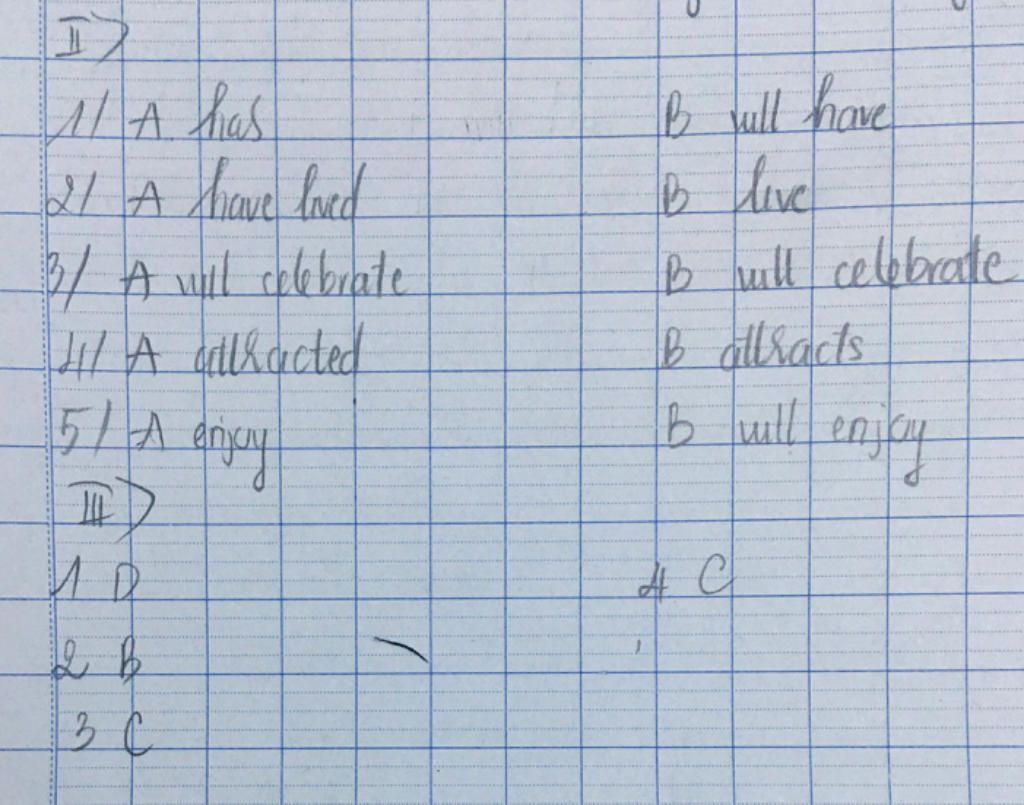 II>
1/ A. has B will have
2/ A have lived B live
3/ A will celebrate B will celebrate
4/ A attracted B attracts
5/ A enjoy B will enjoy
III>
1 D 4 C
2 B
3 C